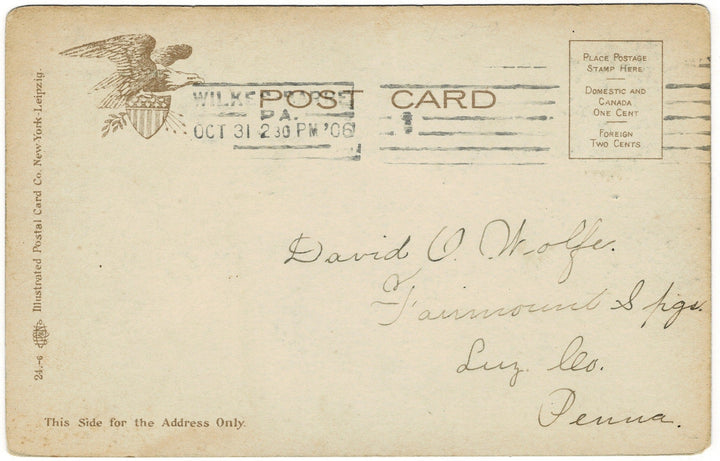 POST CARD
WILKES-BARRE
PA.
OCT 31 2 30 PM '06
1
PLACE POSTAGE
STAMP HERE
DOMESTIC AND
CANADA
ONE CENT
FOREIGN
TWO CENTS
David O. Wolfe.
Fairmount Spgs.
Luz. Co.
Penna.
Illustrated Postal Card Co. New-York-Leipzig.
24.-6
This Side for the Address Only.